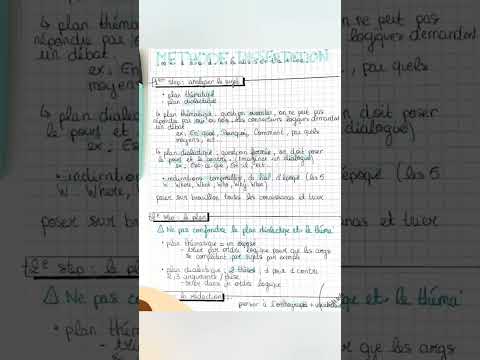 METHODE DISSERTATION
1ère step : analyser le sujet
• plan thématique
• plan dialectique
↳ plan thématique : question ouverte, on ne peut pas
répondre par oui ou non. Les connecteurs logiques demandent
un débat
ex : En quoi, Pourquoi, Comment, par quels
moyens, ect...
↳ plan dialectique : question fermée, on doit poser
le pour et le contre. (Imaginer un dialogue)
ex : Est-ce que,
• indications temporelles, de lieu, d'époque (les 5
W. Where, What, Who, Why, When)
poser sur brouillon toutes ses connaissances et trier
2e step : le plan
⚠ Ne pas confondre le plan dialectique et le théma
• plan thématique = un exposé
- trier par ordre logique pour que les args
se complètent par sujets par exemple
• plan dialectique : 2 thèses ; 1 pour 1 contre
2/3 arguments / thèse
- trier dans un ordre logique
la rédaction :
penser à l'orthographe +